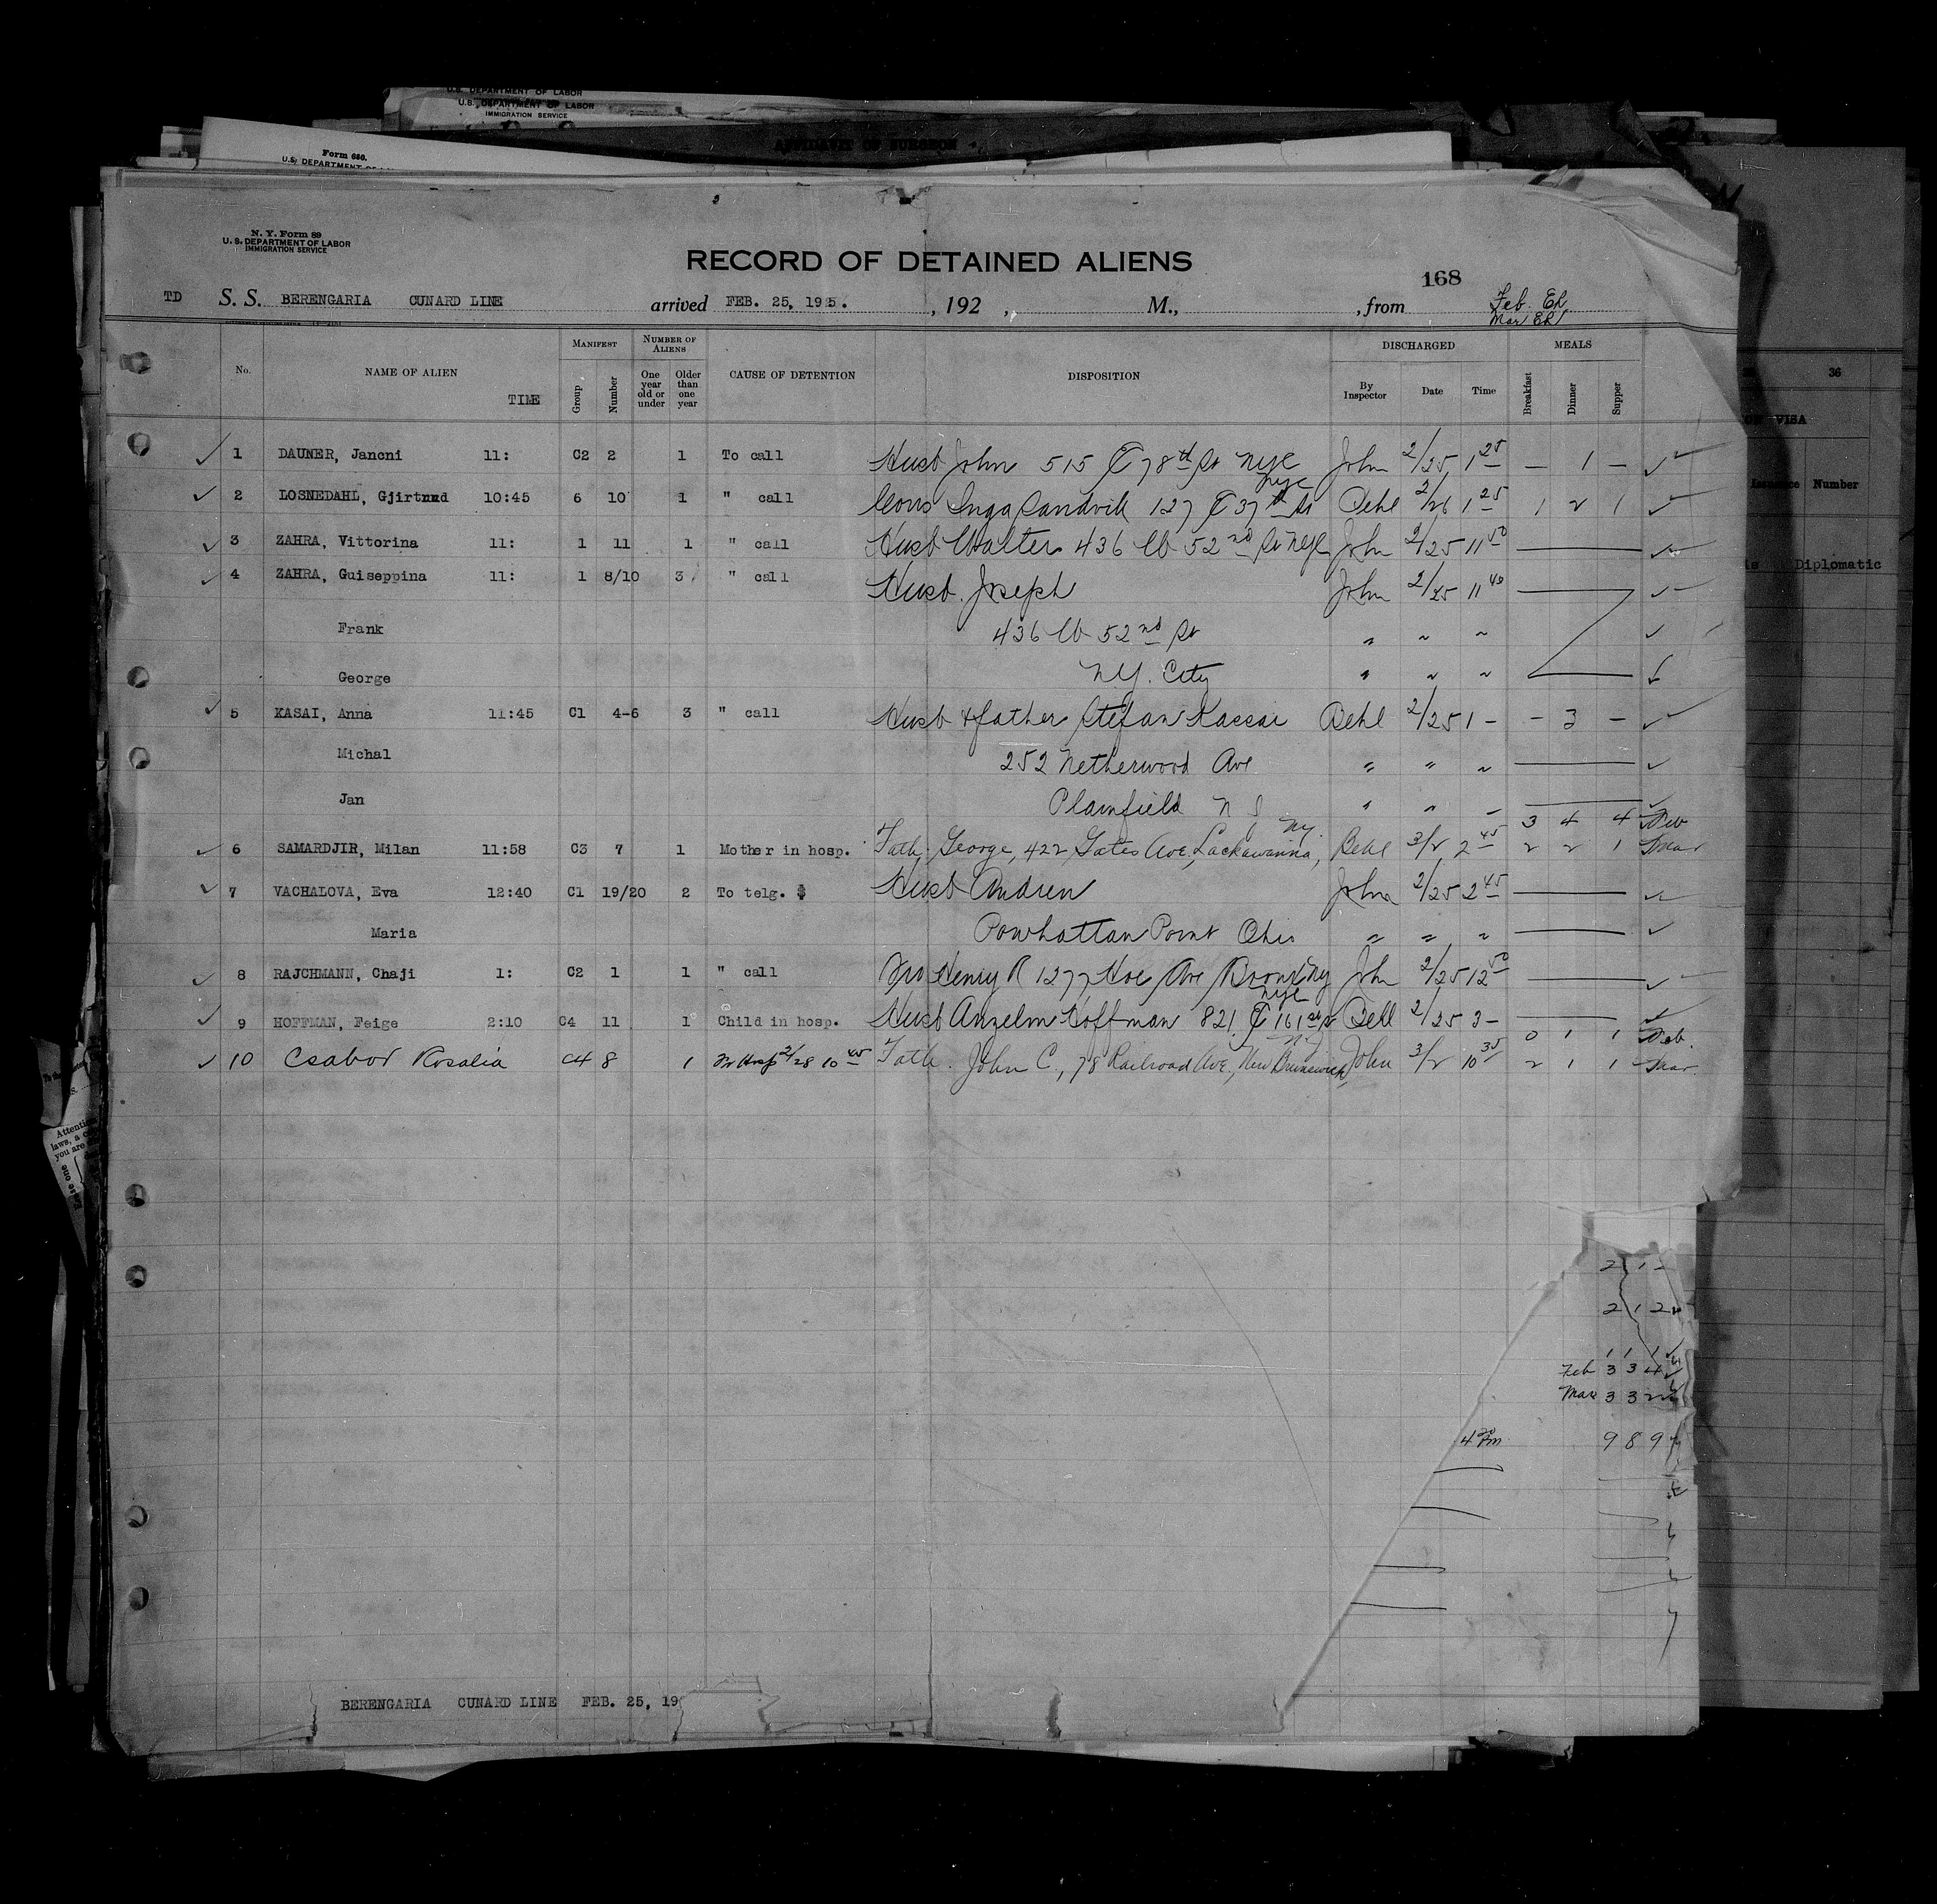 U.S. DEPARTMENT OF LABOR
U.S. DEPARTMENT OF LABOR
IMMIGRATION SERVICE
AFFIDAVIT OF SURGEON
Form 680.
U.S. DEPARTMENT OF
N. Y. Form 89
U. S. DEPARTMENT OF LABOR
IMMIGRATION SERVICE
RECORD OF DETAINED ALIENS
168
TD S. S. BERENGARIA CUNARD LINE arrived FEB. 25, 1925. , 192 , M., , from Feb. ER
Mar ER
No. NAME OF ALIEN TIME MANIFEST Group Number NUMBER OF ALIENS One year old or under Older than one year CAUSE OF DETENTION DISPOSITION DISCHARGED By Inspector Date Time MEALS Breakfast Dinner Supper
36
VISA
Number
Diplomatic
1 DAUNER, Jancni 11: C2 2 1 To call Husb John 515 E 78th St NYC John 2/25 1 25 — 1 —
2 LOSNEDAHL, Gjirtrud 10:45 6 10 1 " call Cous Inga Sandvik 127 E 37th St NYC Behl 2/26 1 25 1 2 1
3 ZAHRA, Vittorina 11: 1 11 1 " call Husb Walter 436 W 52nd St NYC John 2/25 11 50
4 ZAHRA, Guiseppina 11: 1 8/10 3 " call Husb. Joseph John 2/25 11 40
Frank 436 W 52nd St " " "
George N.Y. City " " "
5 KASAI, Anna 11:45 C1 4-6 3 " call Husb & father Stefan Kassai Behl 2/25 1 - - 3 -
Michal 252 Netherwood Ave " " "
Jan Plainfield N J " " -
3 4 4 Feb
6 SAMARDJIR, Milan 11:58 C3 7 1 Mother in hosp. Fath. George, 422 Gates Ave., Lackawanna, NY. Behl 3/2 2 45 2 2 1 Mar
7 VACHALOVA, Eva 12:40 C1 19/20 2 To telg. Husb Andrew John 2/25 2 45
Maria Powhattan Point Ohio " " "
8 RAJCHMANN, Chaji 1: C2 1 1 " call Henry R 1277 Hoe Ave Bronx NY John 2/25 12 50
9 HOFFMAN, Feige 2:10 C4 11 1 Child in hosp. Husb Anzelm Hoffman 821 E 161st St NYC Behl 2/25 3 -
0 1 1 Feb.
10 Csabor Rosalia C4 8 1 Fr Hosp 2/28 10 45 Fath. John C, 78 Railroad Ave., New Brunswick, NJ John 3/2 10 35 2 1 1 Mar.
2 1 -
2 1 2
1 1 1
Feb 3 3 4
Mar 3 3 2
4 20 Pm 9 8 9
BERENGARIA CUNARD LINE FEB. 25, 19